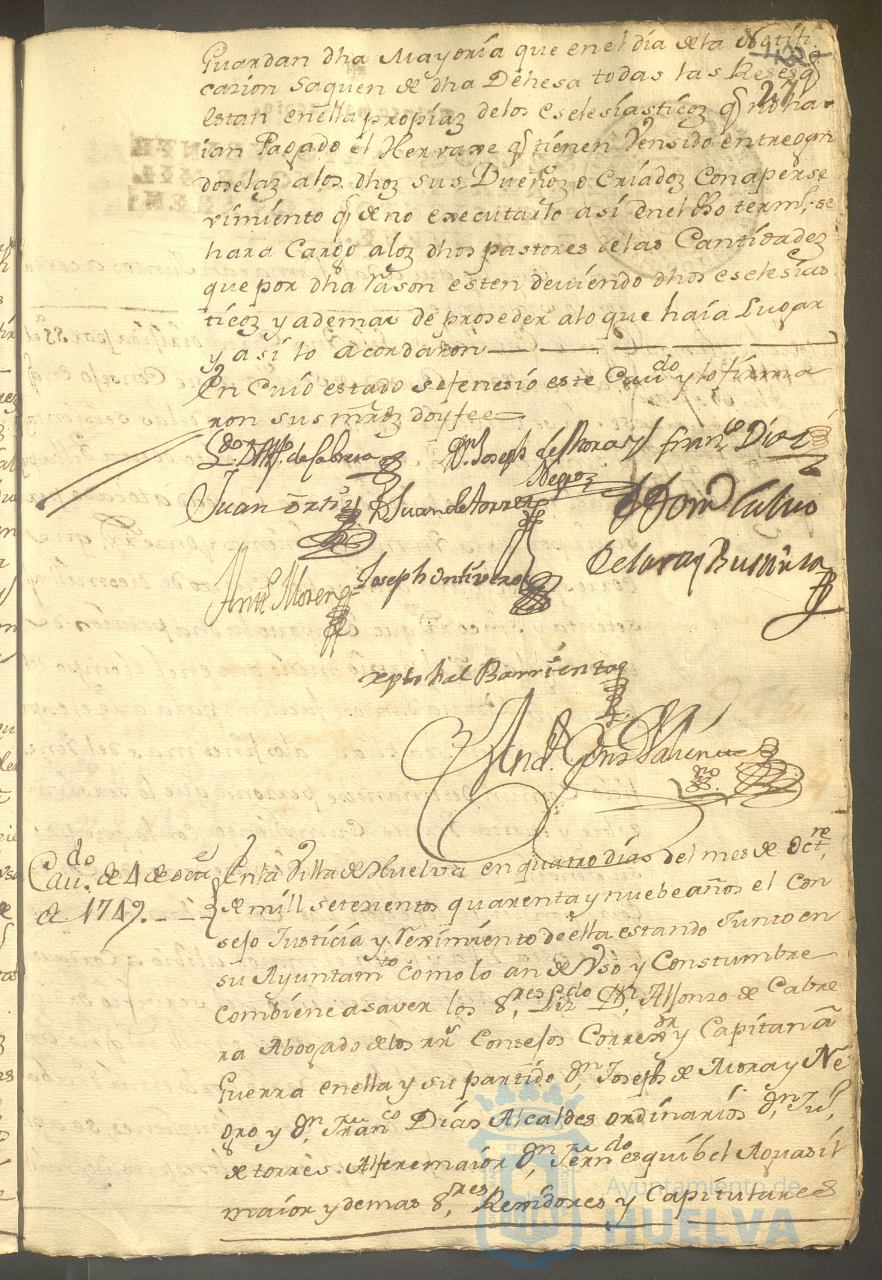 Guardan dha Mayoría que en el día de la Notifi
cazion saquen de dha Dehesa todas las Reses q
estan en ella propias de los eselesiasticos q no ha
ian Pagado el Hervaxe q tienen Vensido entregan
doselas a los dhos sus Dueños o Criados con aperse
vimiento q de no executarlo así en el dho termo se
hara Cargo a los dhos pastores de las Cantidades
que por dha rason esten deviendo dhos eselesias
ticos y ademas de proseder alo que haia Lugar
y así lo acordaron
En Cuio estado se fenesió este Cavdo y lo firma
ron sus mrds doy fee
Ldo Dn Alfo de Cabrera Dn Joseph de Mora y Franco Diaz
Negro
Juan Ortiz Dn Juan de torres
Anto Moreno Joseph Ontivero
Xptobal Barrientos
Cavdo de 4 de octe
de 1749
En la Villa de Huelva en quatro días del mes de Octre
de mill setesientos quarenta y nuebe años el Con
sejo Justicia y Reximiento de ella estando Junto en
su Ayuntamto como lo an de Vso y Constumbre
combiene a saver los Sres Lizdo Dn Alfonzo de Cabre
ra Abogado de los rrs Consejos Correxor y Capitan a
Guerra en ella y su partido Dn Joseph de Mora y Ne
gro y Dn Franco Días Alcaldes ordinarios Dn Jun
de torres Alferemaior Dn Ferndo esquibel Aguasil
maior y demas Sres Rexidores y Capitulares
Ayuntamiento de
HUELVA